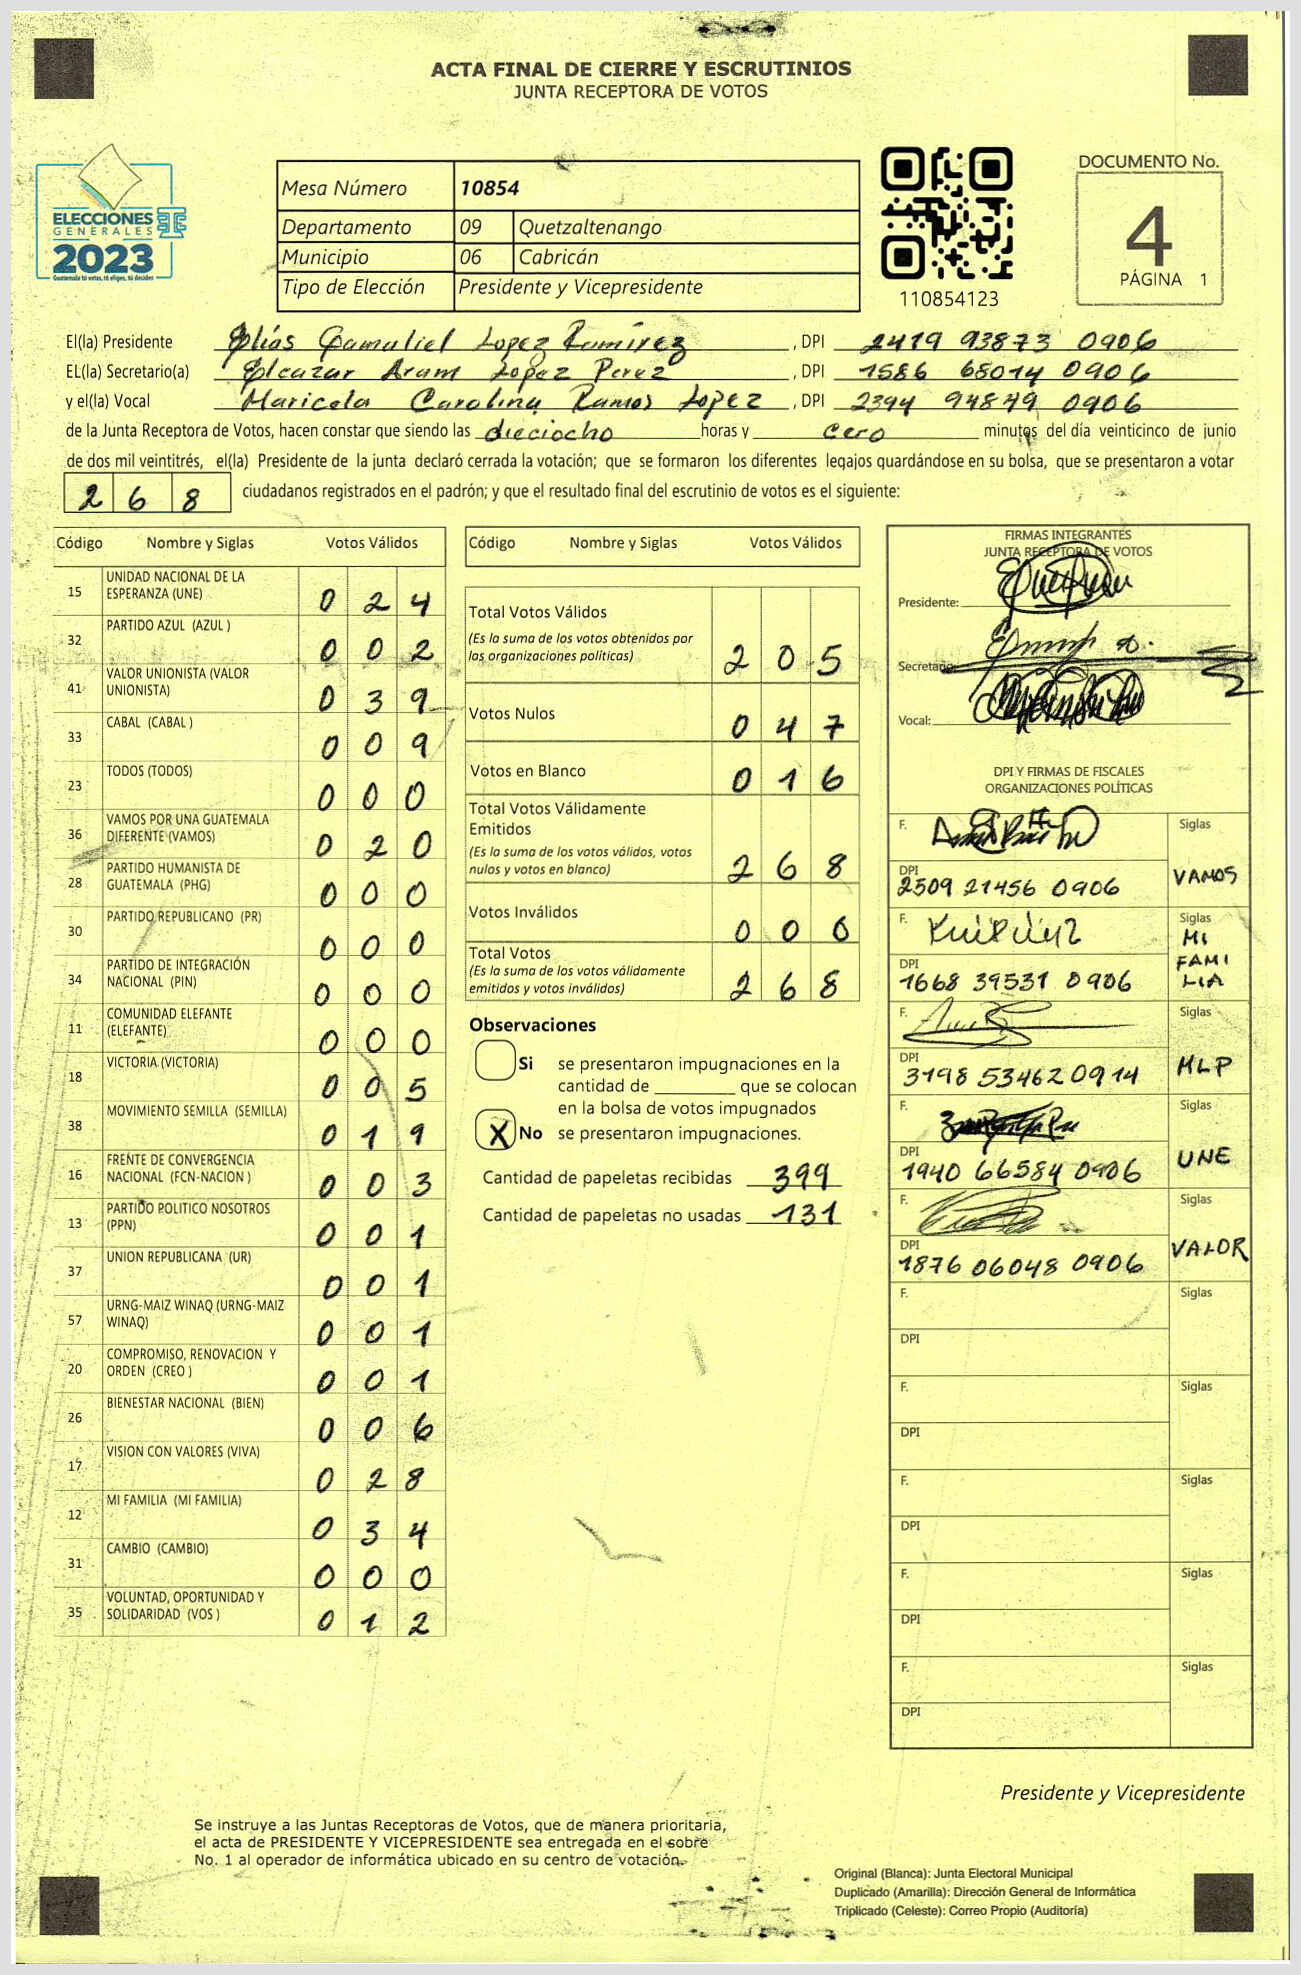 ACTA FINAL DE CIERRE Y ESCRUTINIOS
JUNTA RECEPTORA DE VOTOS
ELECCIONES
GENERALES
2023
Guatemala tú votas, tú eliges, tú decides
Mesa Número 10854
Departamento 09 Quetzaltenango
Municipio 06 Cabricán
Tipo de Elección Presidente y Vicepresidente
110854123
DOCUMENTO No.
4
PÁGINA 1
El(la) Presidente Elías Gamaliel Lopez Ramírez, DPI 2419 93873 0906
EL(la) Secretario(a) Eleazar Aram Lopez Perez, DPI 1586 68014 0906
y el(la) Vocal Maricela Carolina Ramos Lopez, DPI 2394 94879 0906
de la Junta Receptora de Votos, hacen constar que siendo las dieciocho horas y cero minutos del día veinticinco de junio
de dos mil veintitrés, el(la) Presidente de la junta declaró cerrada la votación; que se formaron los diferentes legajos quardándose en su bolsa, que se presentaron a votar
268 ciudadanos registrados en el padrón; y que el resultado final del escrutinio de votos es el siguiente:
Código Nombre y Siglas Votos Válidos
15 UNIDAD NACIONAL DE LA
ESPERANZA (UNE) 024
32 PARTIDO AZUL (AZUL ) 002
41 VALOR UNIONISTA (VALOR
UNIONISTA) 039
33 CABAL (CABAL ) 009
23 TODOS (TODOS) 000
36 VAMOS POR UNA GUATEMALA
DIFERENTE (VAMOS) 020
28 PARTIDO HUMANISTA DE
GUATEMALA (PHG) 000
30 PARTIDO REPUBLICANO (PR) 000
34 PARTIDO DE INTEGRACIÓN
NACIONAL (PIN) 000
11 COMUNIDAD ELEFANTE
(ELEFANTE) 000
18 VICTORIA (VICTORIA) 005
38 MOVIMIENTO SEMILLA (SEMILLA) 019
16 FRENTE DE CONVERGENCIA
NACIONAL (FCN-NACION ) 003
13 PARTIDO POLITICO NOSOTROS
(PPN) 001
37 UNION REPUBLICANA (UR) 001
57 URNG-MAIZ WINAQ (URNG-MAIZ
WINAQ) 001
20 COMPROMISO, RENOVACION Y
ORDEN (CREO ) 001
26 BIENESTAR NACIONAL (BIEN) 006
17 VISION CON VALORES (VIVA) 028
12 MI FAMILIA (MI FAMILIA) 034
31 CAMBIO (CAMBIO) 000
35 VOLUNTAD, OPORTUNIDAD Y
SOLIDARIDAD (VOS ) 012
Código Nombre y Siglas Votos Válidos
Total Votos Válidos
(Es la suma de los votos obtenidos por
las organizaciones políticas) 205
Votos Nulos 047
Votos en Blanco 016
Total Votos Válidamente
Emitidos
(Es la suma de los votos válidos, votos
nulos y votos en blanco) 268
Votos Inválidos 000
Total Votos
(Es la suma de los votos válidamente
emitidos y votos inválidos) 268
Observaciones
Si se presentaron impugnaciones en la
cantidad de ________ que se colocan
en la bolsa de votos impugnados
X No se presentaron impugnaciones.
Cantidad de papeletas recibidas 399
Cantidad de papeletas no usadas 131
FIRMAS INTEGRANTES
JUNTA RECEPTORA DE VOTOS
Presidente:
Secretario:
Vocal:
DPI Y FIRMAS DE FISCALES
ORGANIZACIONES POLÍTICAS
F. Siglas
DPI
2509 21456 0906 VAMOS
F. Siglas
MI
FAMI
LIA
DPI
1668 39531 0906
F. Siglas
DPI
3198 53462 0914 MLP
F. Siglas
DPI
1940 66584 0906 UNE
F. Siglas
DPI
1876 06048 0906 VALOR
F. Siglas
DPI
F. Siglas
DPI
F. Siglas
DPI
F. Siglas
DPI
F. Siglas
DPI
Presidente y Vicepresidente
Se instruye a las Juntas Receptoras de Votos, que de manera prioritaria,
el acta de PRESIDENTE Y VICEPRESIDENTE sea entregada en el sobre
No. 1 al operador de informática ubicado en su centro de votación.
Original (Blanca): Junta Electoral Municipal
Duplicado (Amarilla): Dirección General de Informática
Triplicado (Celeste): Correo Propio (Auditoría)